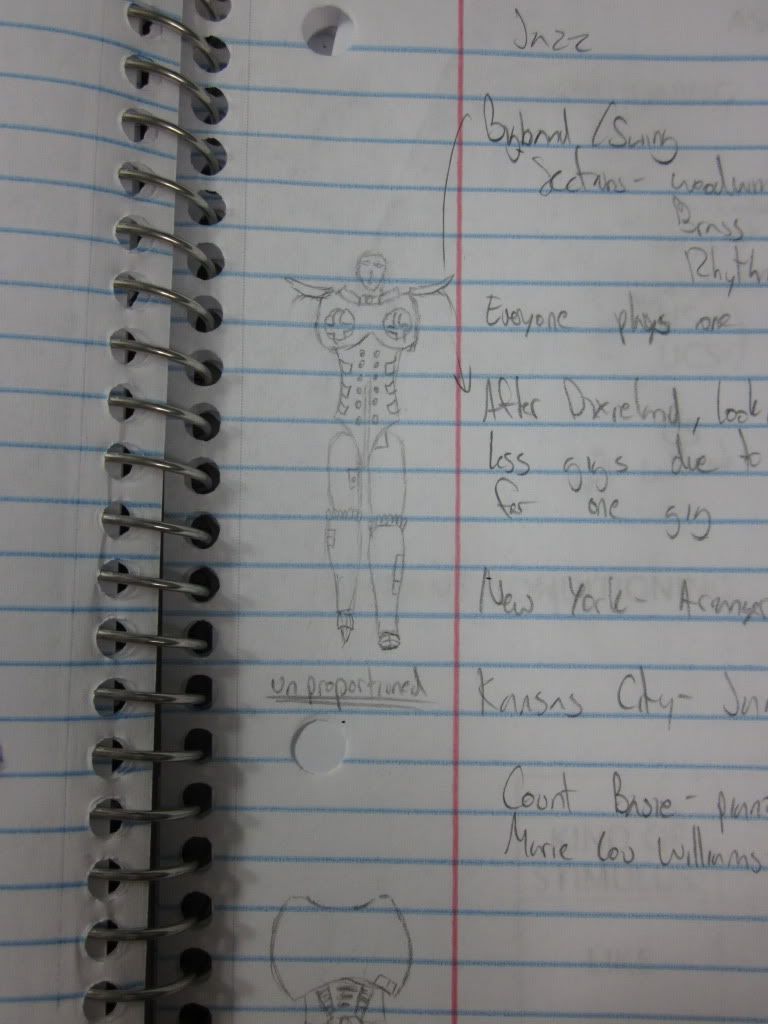 Jazz
Bigband / Swing
Sections - woodwin
Brass
Rhyth
Everyone plays one
After Dixieland, look
less gigs due to
for one gig
New York - Arranger
unproportioned
Kansas City - Jam
Count Basie -
Marie Lou Williams